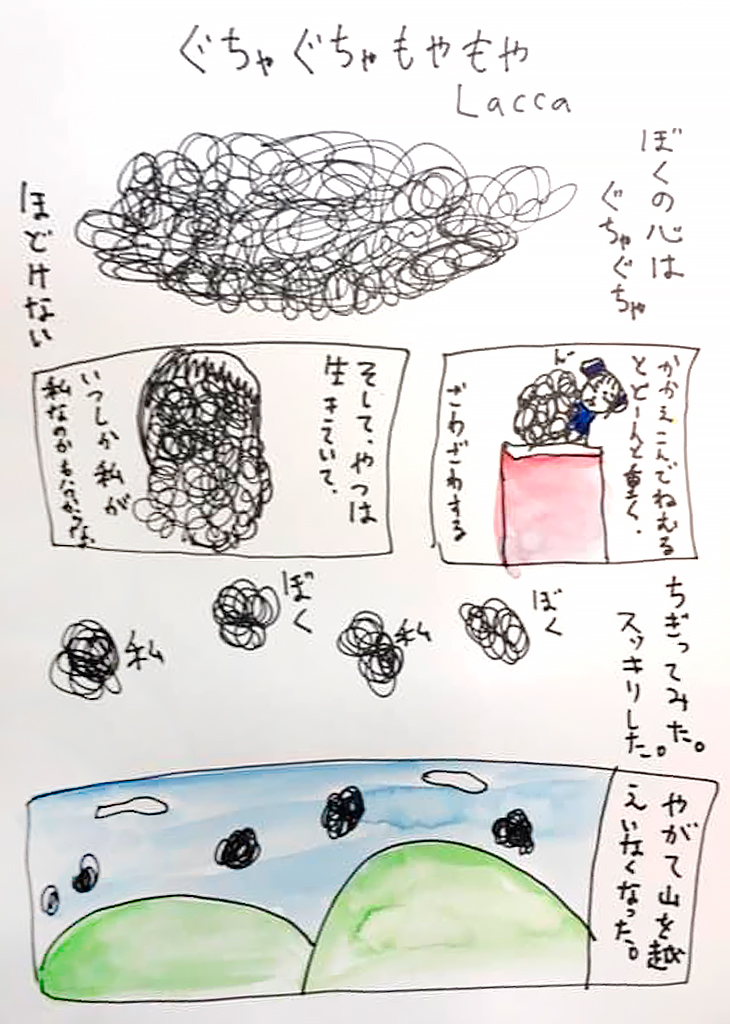 ぐちゃぐちゃもやもや
Lacca
ぼくの心は
ぐちゃぐちゃ
ほどけない
かかえこんでねむる
とどーんと重く、
ざわざわする
そして、やつは
生きていて、
いつしか私が
私なのかも分からな
ちぎってみた。
スッキリした。
ぼく
私
ぼく
私
やがて山を越
えいなくなった。